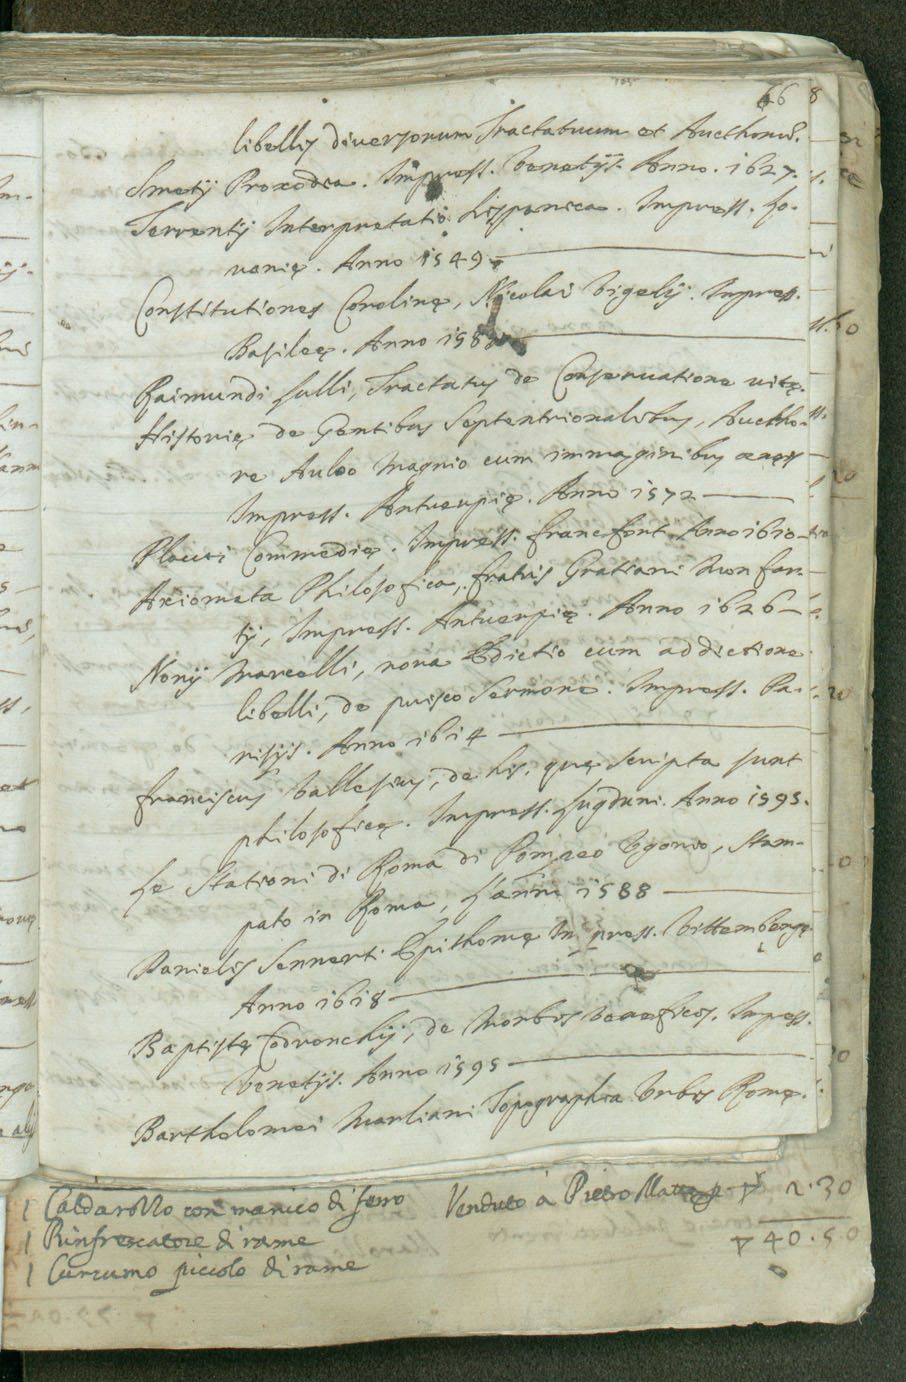 66 8
libellis diversorum Tractatuum et Aucthoru͂.
Smetij Prosodia. Impress. Venetijs. Anno. 1627.
Terrentij Interpretatio hispanica. Impress. Lo-
vanię. Anno 1549
Constitutiones Carolinę, Nicolai Vigelij. Impress.
Basileę. Anno 158
Raimundi Lulli, Tractatus de Conservatione vitę.
Historię de Gentibus Septentrionalibus, Auctho-
re Aulao Magnio cum immaginibus aeneis
Impress. Antuerpię. Anno 1572
Plauti Commedię. Impress. Francfort Anno 1610
Axiomata Philosofica, fratris Gratiani Monfor-
tij, Impress. Antuerpię. Anno 1626
Nonij Marcelli, nova Edictio cum addictione
libelli, de prisco Sermone. Impress. Pa-
risijs. Anno 1614
Franciscus Vallesius, de his, quę scripta sunt
philosoficę. Impress. Lugduni. Anno 1595.
Le Stationi di Roma di Pompeo Ugonio, Stam-
pato in Roma, L'anno 1588
Danielis Sennerti Epithomę Impress. Vittembergę
Anno 1618
Baptistę Codronchij, de Morbis Veneficos. Impress.
Venetijs. Anno 1595
Bartholomei Marliani Topographia Urbis Romę.
1 Caldarozzo con manico di ferro Venduto à Pietro 2.30
1 Rinfrescatore di rame 40.50
1 Cuccumo piccolo di rame